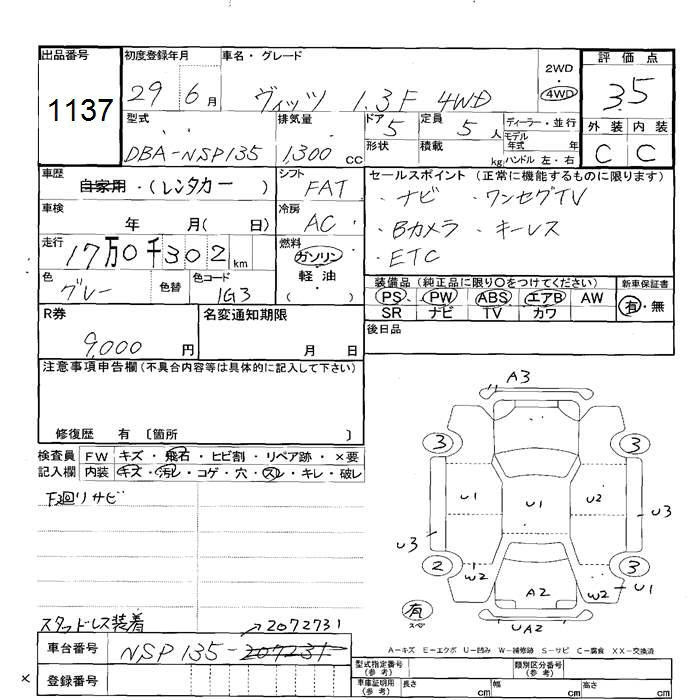 出品番号 初度登録年月 車名・グレード 評価点
1137
29 6月 ヴィッツ 1.3F 4WD 2WD・4WD 3.5
型式 排気量 ドア 5 定員 5人 ディーラー・並行 外装 内装
モデル年式 年
DBA-NSP135 1,300 cc 形状 積載 kg ハンドル 左・右 C C
車歴 シフト セールスポイント (正常に機能するものに限ります)
自家用・(レンタカー) FAT ・ナビ ・ワンセグTV
車検 冷房
年 月( 日) AC ・Bカメラ ・キーレス
走行 燃料 ・ETC
17万0千302km ガソリン
軽油
( )
色 色替 色コード 装備品 (純正品に限り○をつけてください) 新車保証書
グレー 1G3 PS PW ABS エアB AW 有・無
SR ナビ TV カワ
R券 名変通知期限 後日品
9,000円 月 日
注意事項申告欄(不具合内容等は具体的に記入して下さい)
修復歴 有 〔箇所 〕
検査員 FW キズ・飛石・ヒビ割・リペア跡・×要
記入欄 内装 キズ・汚レ・コゲ・穴・スレ・キレ・破レ
下廻りサビ
スタッドレス装着
A3
3 3
U1 U1 U2
U3 U3
2 3
W2 W2 U1
A2
有
スペア
UA2
A-キズ E-エクボ U-凹み W-補修跡 S-サビ C-腐食 XX-交換済
→2072731
車台番号 NSP135-
× 登録番号
型式指定番号(参考) 類別区分番号(参考)
車庫証明用(参考) 長さ cm 幅 cm 高さ cm